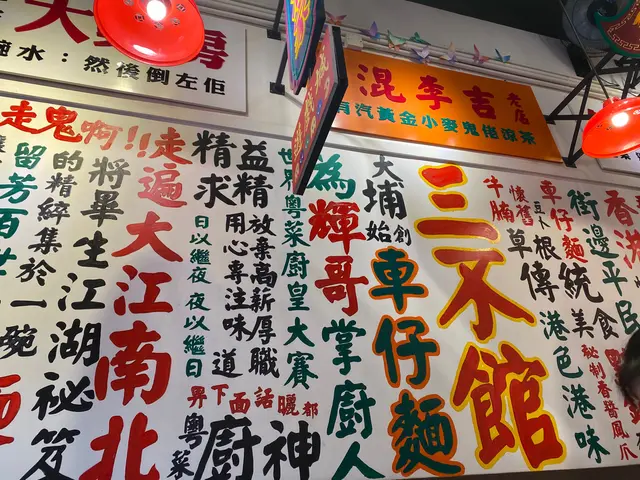 碗水：然後倒左佢
混李吉 老店
有汽黃金小麥鬼佬涼茶
香港
街邊平民
車仔麵
懷舊豆卜
牛腩
草根
傳統
美食
港色港味
秘制香醬鳳爪
三不館
大埔始創
車仔麵
為輝哥掌廚人
世界粵菜廚皇大賽
益精
精求
放棄高新厚職
用心專注味道
日以繼夜夜以繼日
界下面話曬都
粵菜
廚神
走鬼啊!!
走遍大江南北
將畢生江湖秘笈
的精粹集於一碗
留芳百世